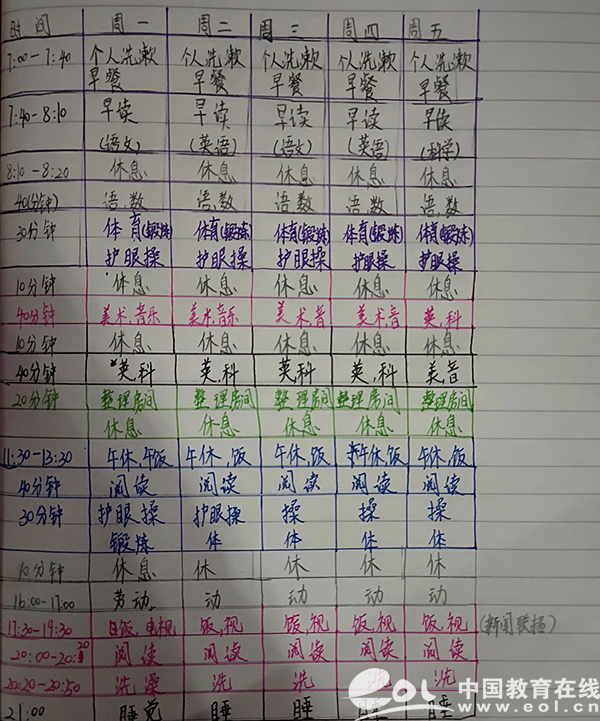 时间 周一 周二 周三 周四 周五
7:00-7:40 个人洗漱 个人洗漱 个人洗漱 个人洗漱 个人洗漱
早餐 早餐 早餐 早餐 早餐
7:40-8:10 早读 早读 早读 早读 早读
(语文) (英语) (语文) (英语) (科学)
8:10-8:20 休息 休息 休息 休息 休息
40(分钟) 语.数 语.数 语.数 语.数 语.数
30分钟 体育(锻炼) 体育(锻炼) 体育(锻炼) 体育(锻炼) 体育(锻炼)
护眼操 护眼操 护眼操 护眼操 护眼操
10分钟 休息 休息 休息 休息 休息
40分钟 美术.音乐 美术.音乐 美术.音 美术.音 英.科
10分钟 休息 休息 休息 休息 休息
40分钟 英.科 英.科 英.科 英.科 美.音
20分钟 整理房间 整理房间 整理房间 整理房间 整理房间
休息 休息 休息 休息 休息
11:30-13:30 午休.午饭 午休.饭 午休.饭 午休.饭 午休.饭
40分钟 阅读 阅读 阅读 阅读 阅读
30分钟 护眼操 护眼操 操 操 操
锻炼 体 体 体 体
10分钟 休息 休 休 休 休
16:00-17:00 劳动 动 动 动 动
17:30-19:30 饭.电视 饭.视 饭.视 饭.视 饭.视 (新闻联播)
20:00-20:20 阅读 阅读 阅读 阅读 阅读
20:20-20:50 洗澡 洗 洗 洗 洗
21:00 睡觉 睡 睡 睡 睡
eol 中国教育在线
www.eol.cn